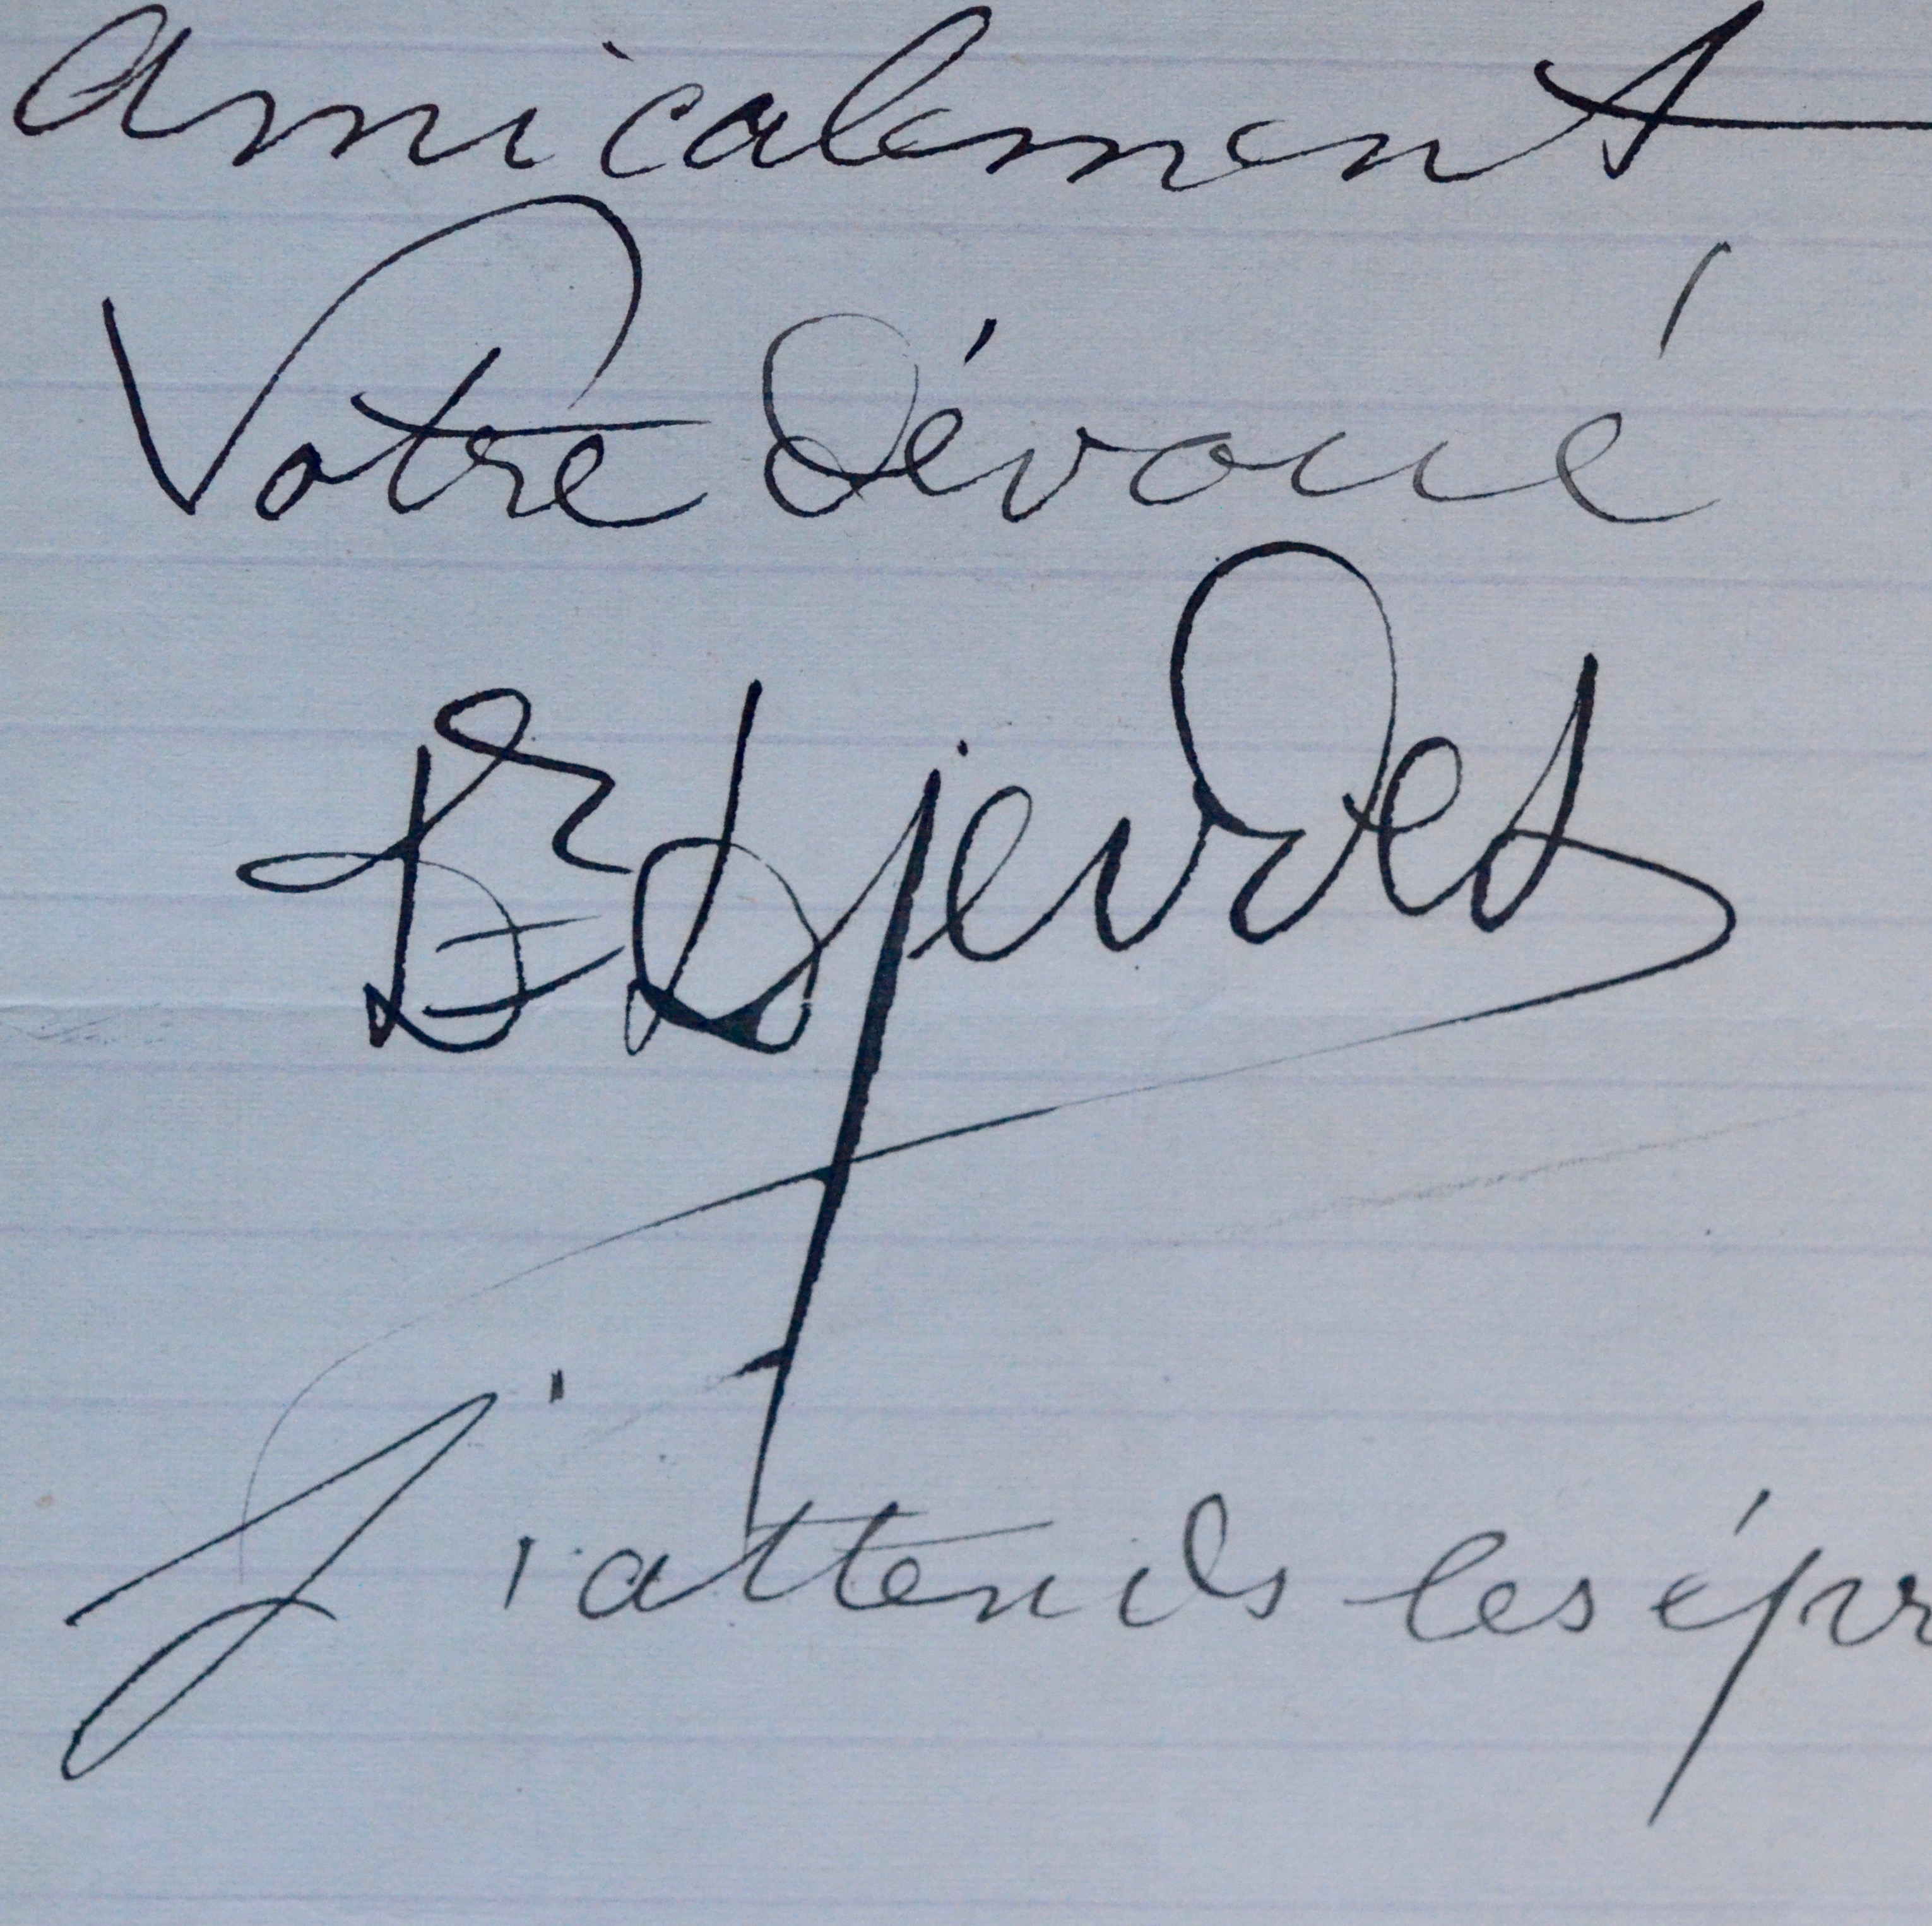 amicalement
Votre dévoué
Dr Djevdet
J'attends les épr